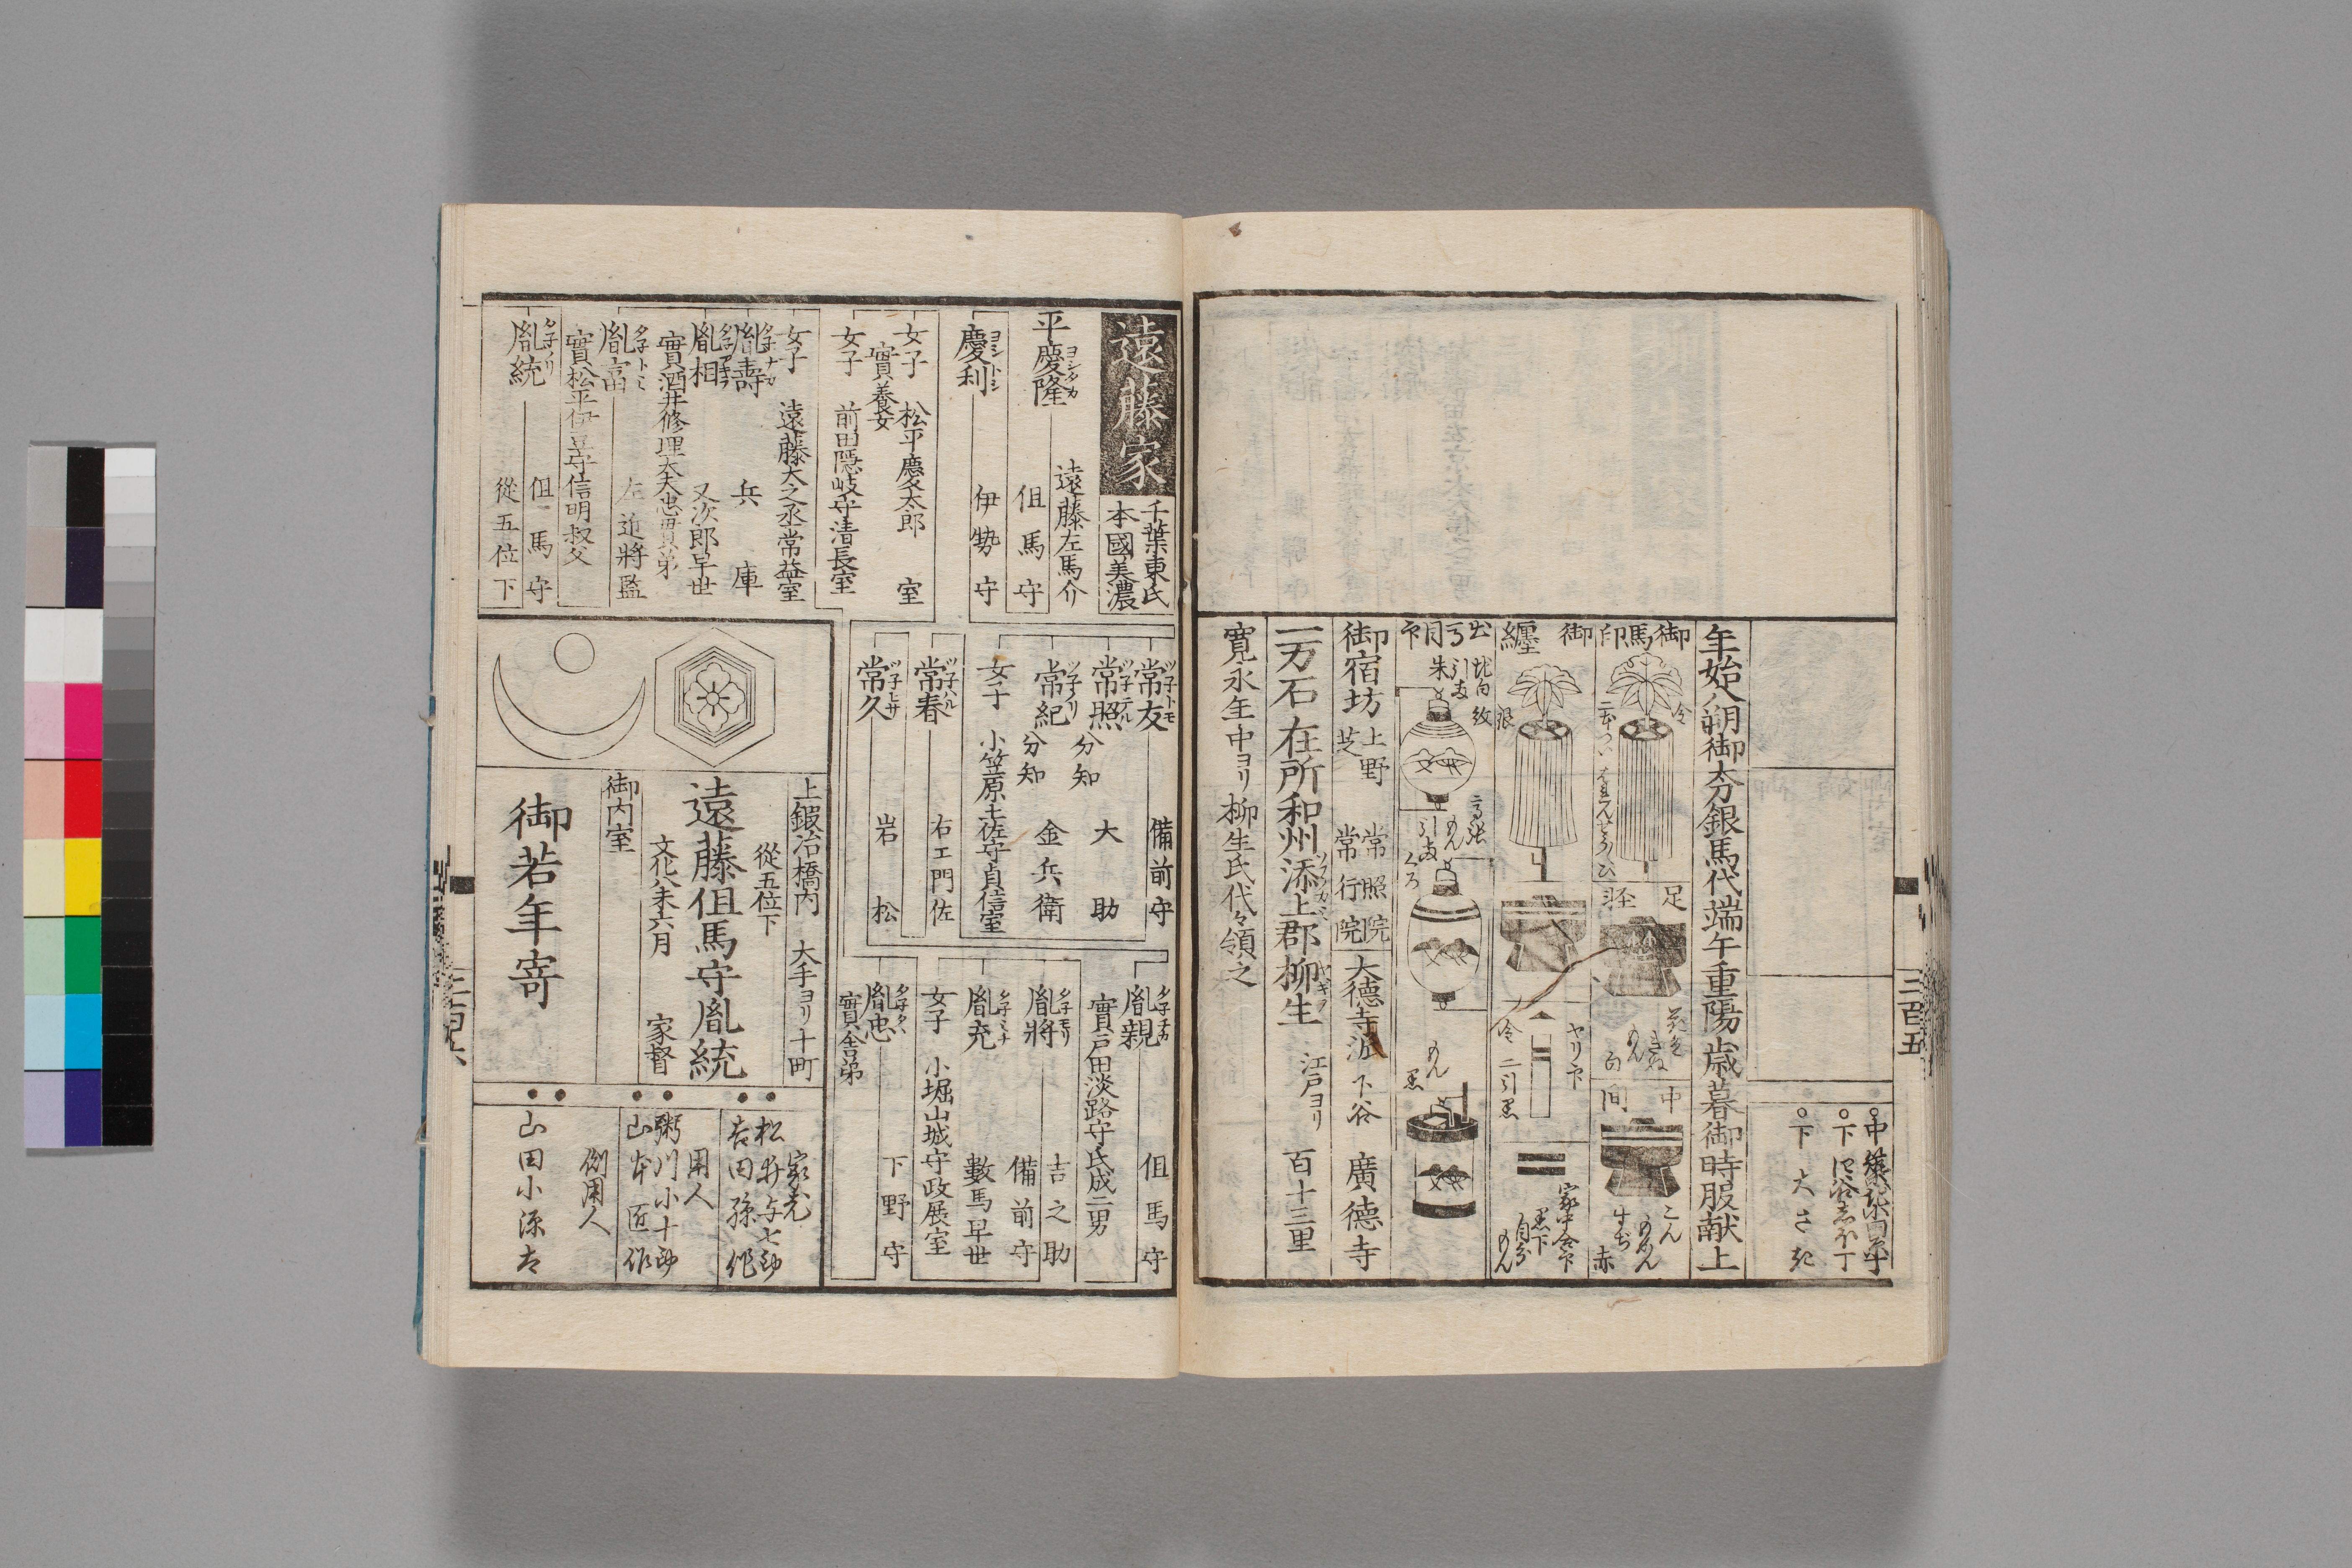 ○下
大
年始八朔御太刀銀馬代端午重陽歳暮御時服献上
御馬印
足
中間
こん
赤
御纏
ヤリ下
二引黒
もん
朱
引両
高張
もん
引両
くろ
もん
黒
御宿坊
上野
芝
常照院
常行院
大徳寺派
下谷
廣徳寺
一万石
在所和州添上郡柳生
ヤギフ
江戸ヨリ
百十三里
寛永年中ヨリ柳生氏代々領之
三百五
遠藤家
千葉東氏
本國美濃
平慶隆
ヨシタカ
遠藤左馬介
但馬守
慶利
ヨシトシ
伊勢守
女子
松平慶太郎室
實養女
女子
前田隠岐守清長室
女子
遠藤大之丞常益室
胤壽
兵庫
胤相
又次郎早世
實酒井修理大夫忠貫弟
胤富
タ子トミ
左近將監
實松平伊豆守信明叔父
胤統
タ子ノリ
但馬守
從五位下
常友
ツ子トモ
備前守
常照
ツ子テル
分知
大助
常紀
ツ子ノリ
分知
金兵衛
女子
小笠原土佐守貞信室
常春
ツ子ハル
右エ門佐
常久
ツ子ヒサ
岩松
胤親
タ子チカ
但馬守
實戸田淡路守氏成二男
胤將
タ子モリ
吉之助
備前守
胤充
タ子ミチ
數馬早世
女子
小堀山城守政展室
胤忠
タ子タヽ
下野守
實舎弟
上鍛冶橋内
大手ヨリ十町
從五位下
遠藤但馬守胤統
文化八未六月
家督
御内室
御若年寄
家老
松井与七郎
吉田孫作
用人
粥川小十郎
山本匠作
側用人
山田小源太
三百六